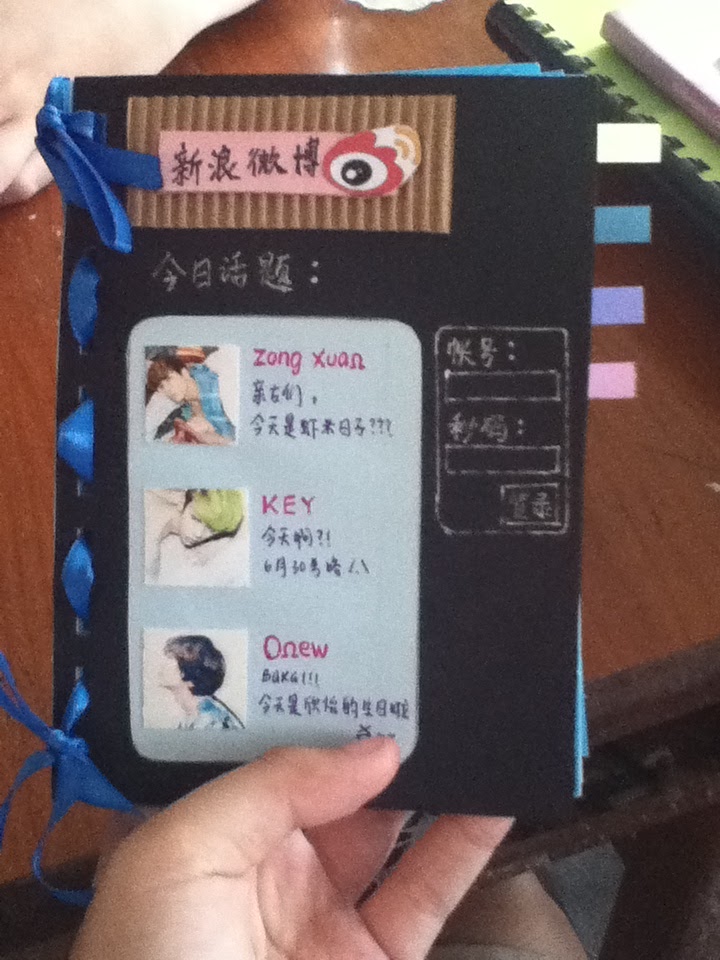 新浪微博
今日话题：
Zong Xuan
亲友们，
今天是虾米日子???
KEY
今天啊?!
6月30号咯
Onew
Baka!!!
今天是欣怡的生日啦
帐号：
密码：
登录